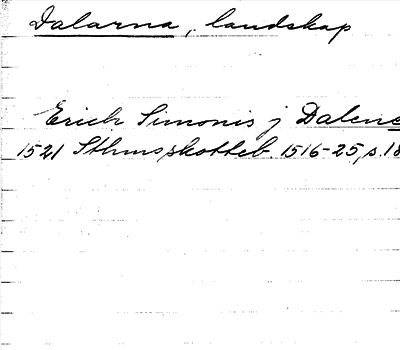 Dalarna, landskap
Erich Simonis j Dalene
1521 Sthmsskotteb. 1516-25, s. 18